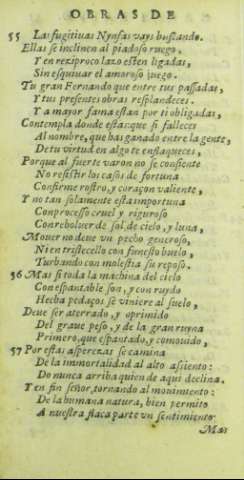 OBRAS DE
55 Las fugitiuas Nynfas vays buscando.
Ellas se inclinen al piadoso ruego,
Y en reziproco lazo esten ligadas,
Sin esquiuar el amoroso juego.
Tu gran Fernando que entre tus passadas,
Y tus presentes obras resplandeces.
Y a mayor fama estan por ti obligadas,
Contempla donde estas: que si falleces
Al nombre, que has ganado entre la gente,
De tu virtud en algo te enflaqueces,
Porque al fuerte varon no se consiente
No resistir los casos de fortuna
Con firme rostro, y coraçon valiente,
Y no tan solamente esta importuna
Con processo cruel y riguroso
Con reboluer de sol, de cielo, y luna,
Mouer no deue vn pecho generoso,
Ni entristecello con funesto buelo,
Turbando con molestia su reposo.
56 Mas si toda la machina del cielo
Con espantable son, y con ruydo
Hecha pedaços, se viniere al suelo,
Deue ser aterrado, y oprimido
Del graue peso, y de la gran ruyna
Primero, que espantado, y comouido,
57 Por estas asperezas se camina
De la immortalidad al alto assiento:
Do nunca arriba quien de aqui declina.
Y en fin señor, tornando al mouimiento:
De la humana natura, bien permito
A nuestra flaca parte vn sentimiento
Mas